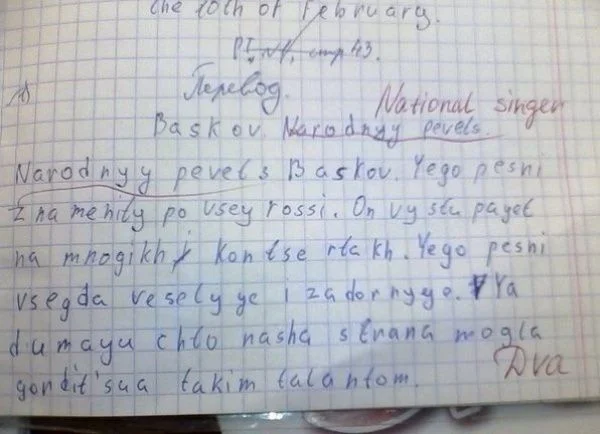 the 10th of February.
P1, №1, стр 43.
Перевод.
National singer
Baskov. Narodnyy pevets.
Narodnyy pevets Baskov. Yego pesni
znamenity po vsey rossi. On vystupayet
na mnogikh kontsertakh. Yego pesni
vsegda veselyye i zadornyye. Ya
dumayu chto nasha strana mogla
gordit'sua takim talantom.
Dva